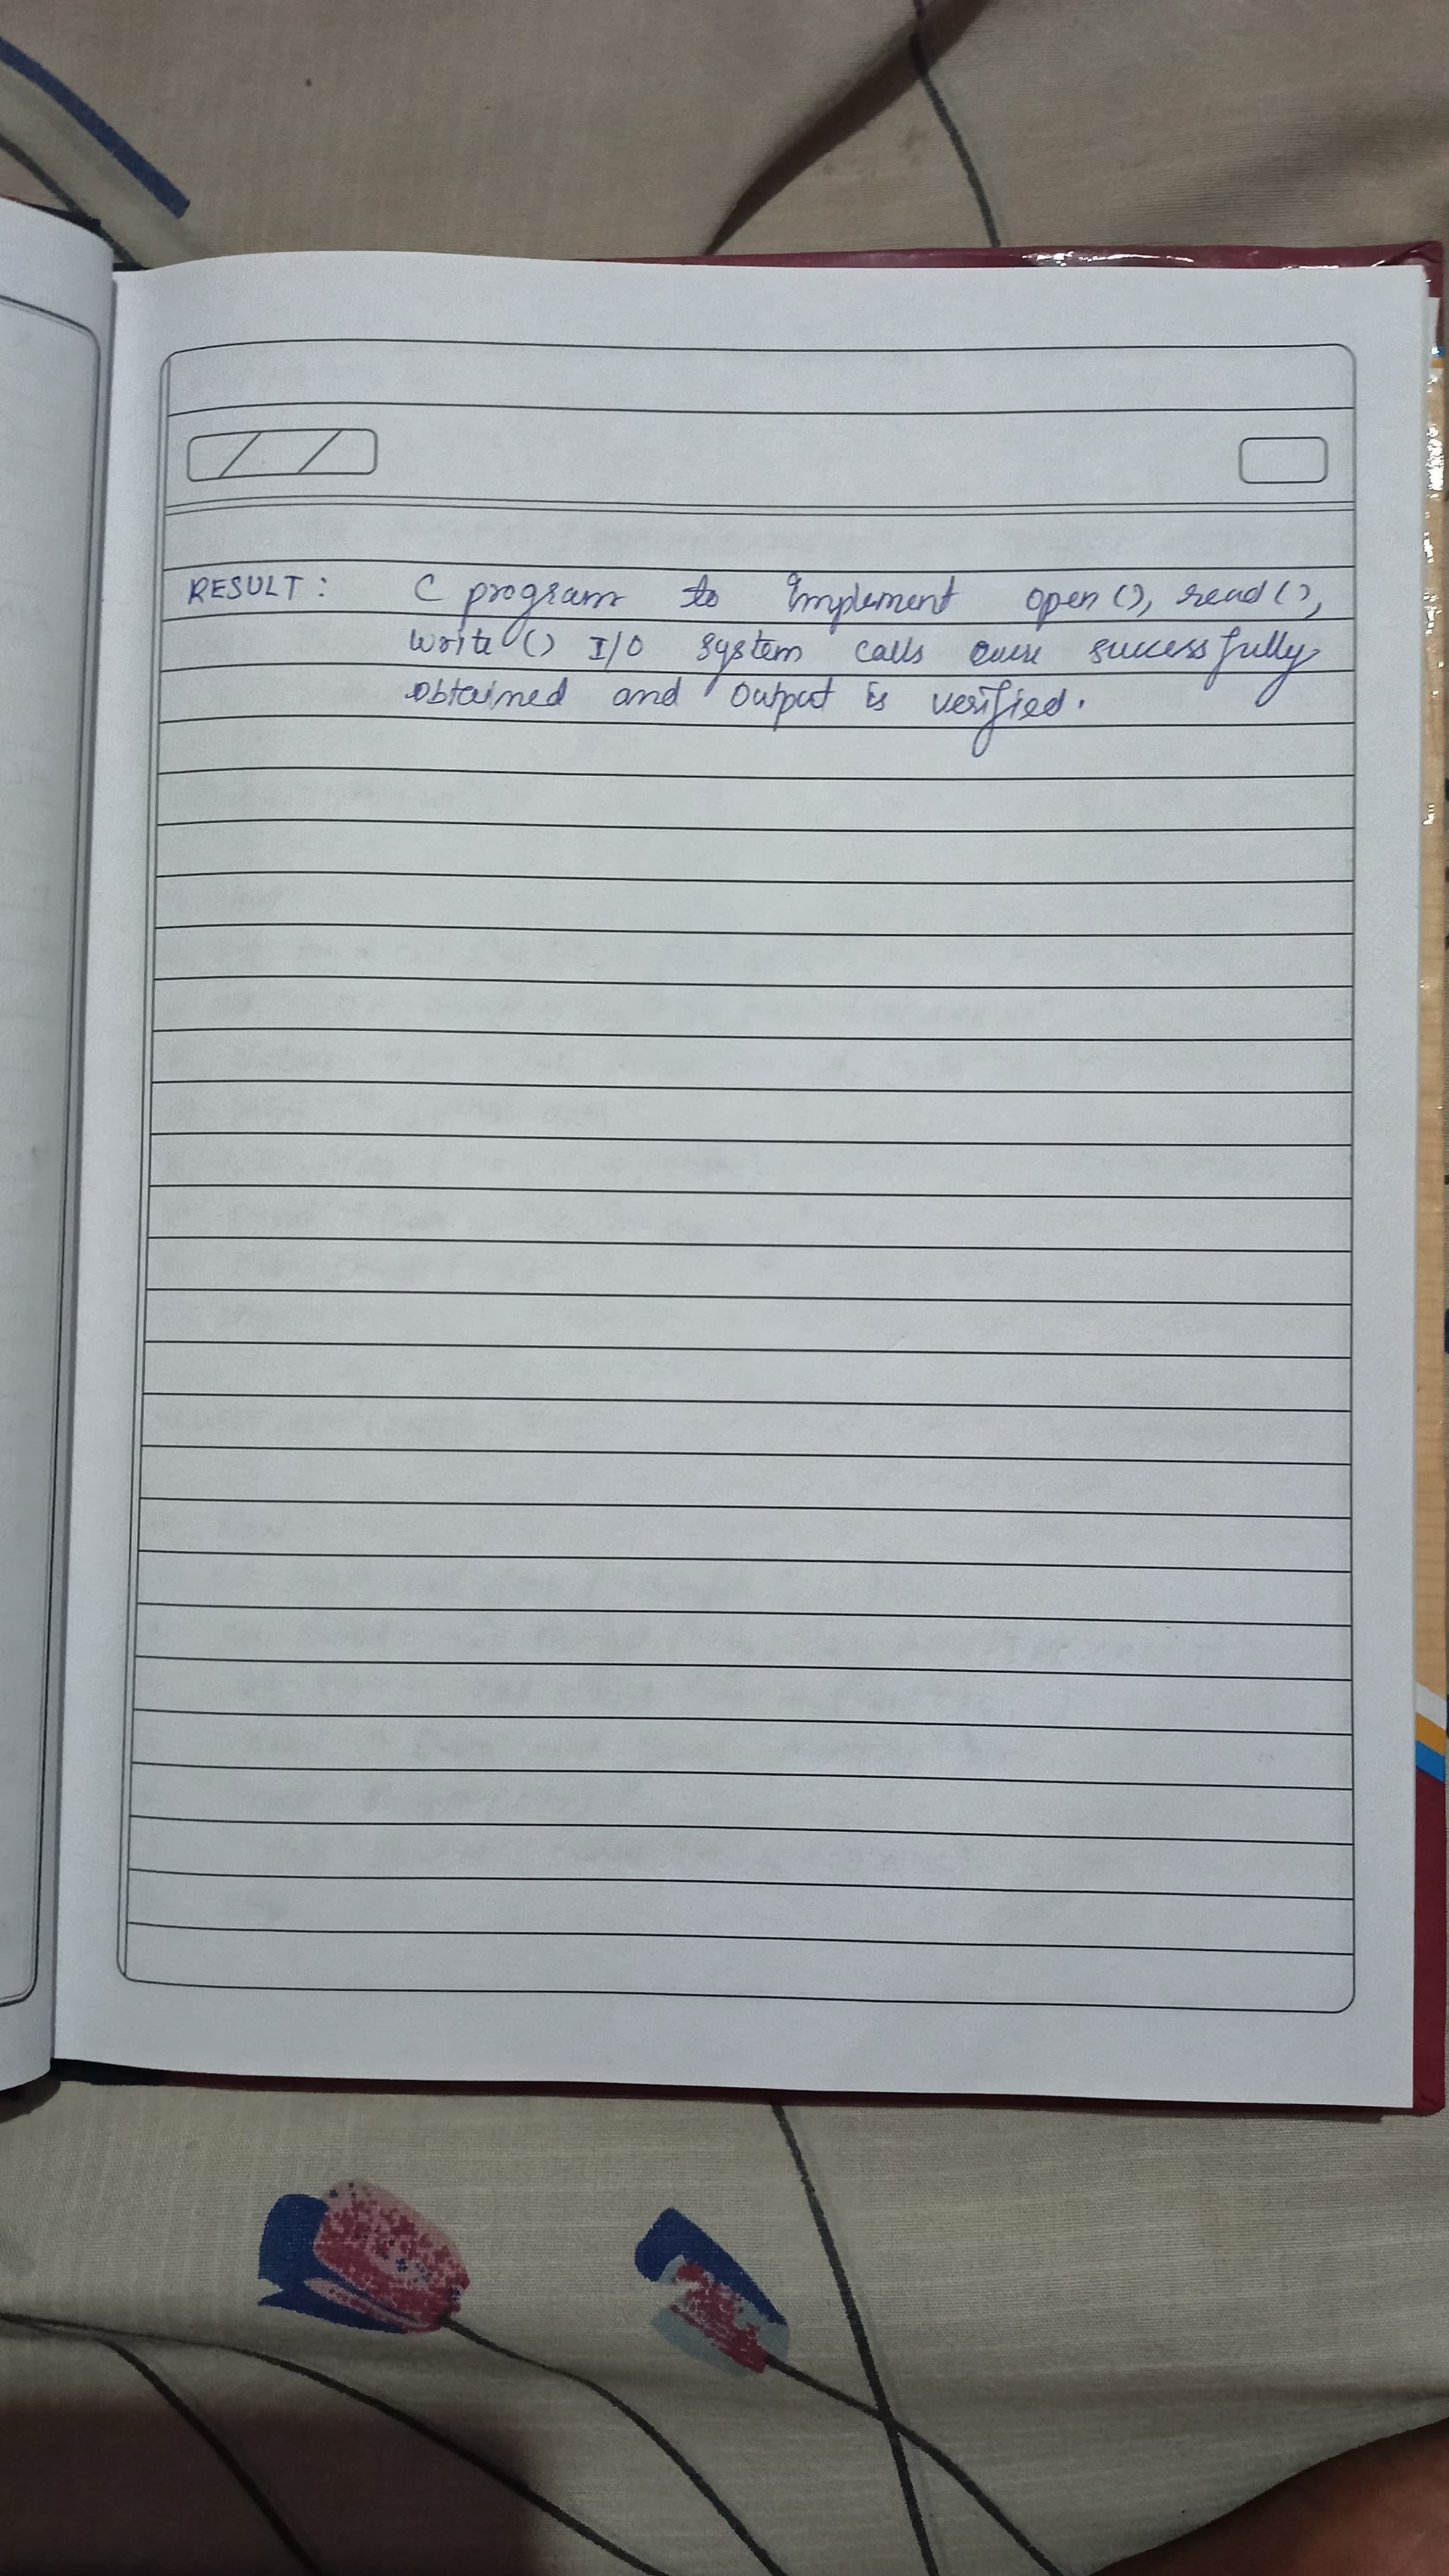 RESULT: C program to implement open(), read(),
write() I/O system calls were successfully
obtained and output is verified.